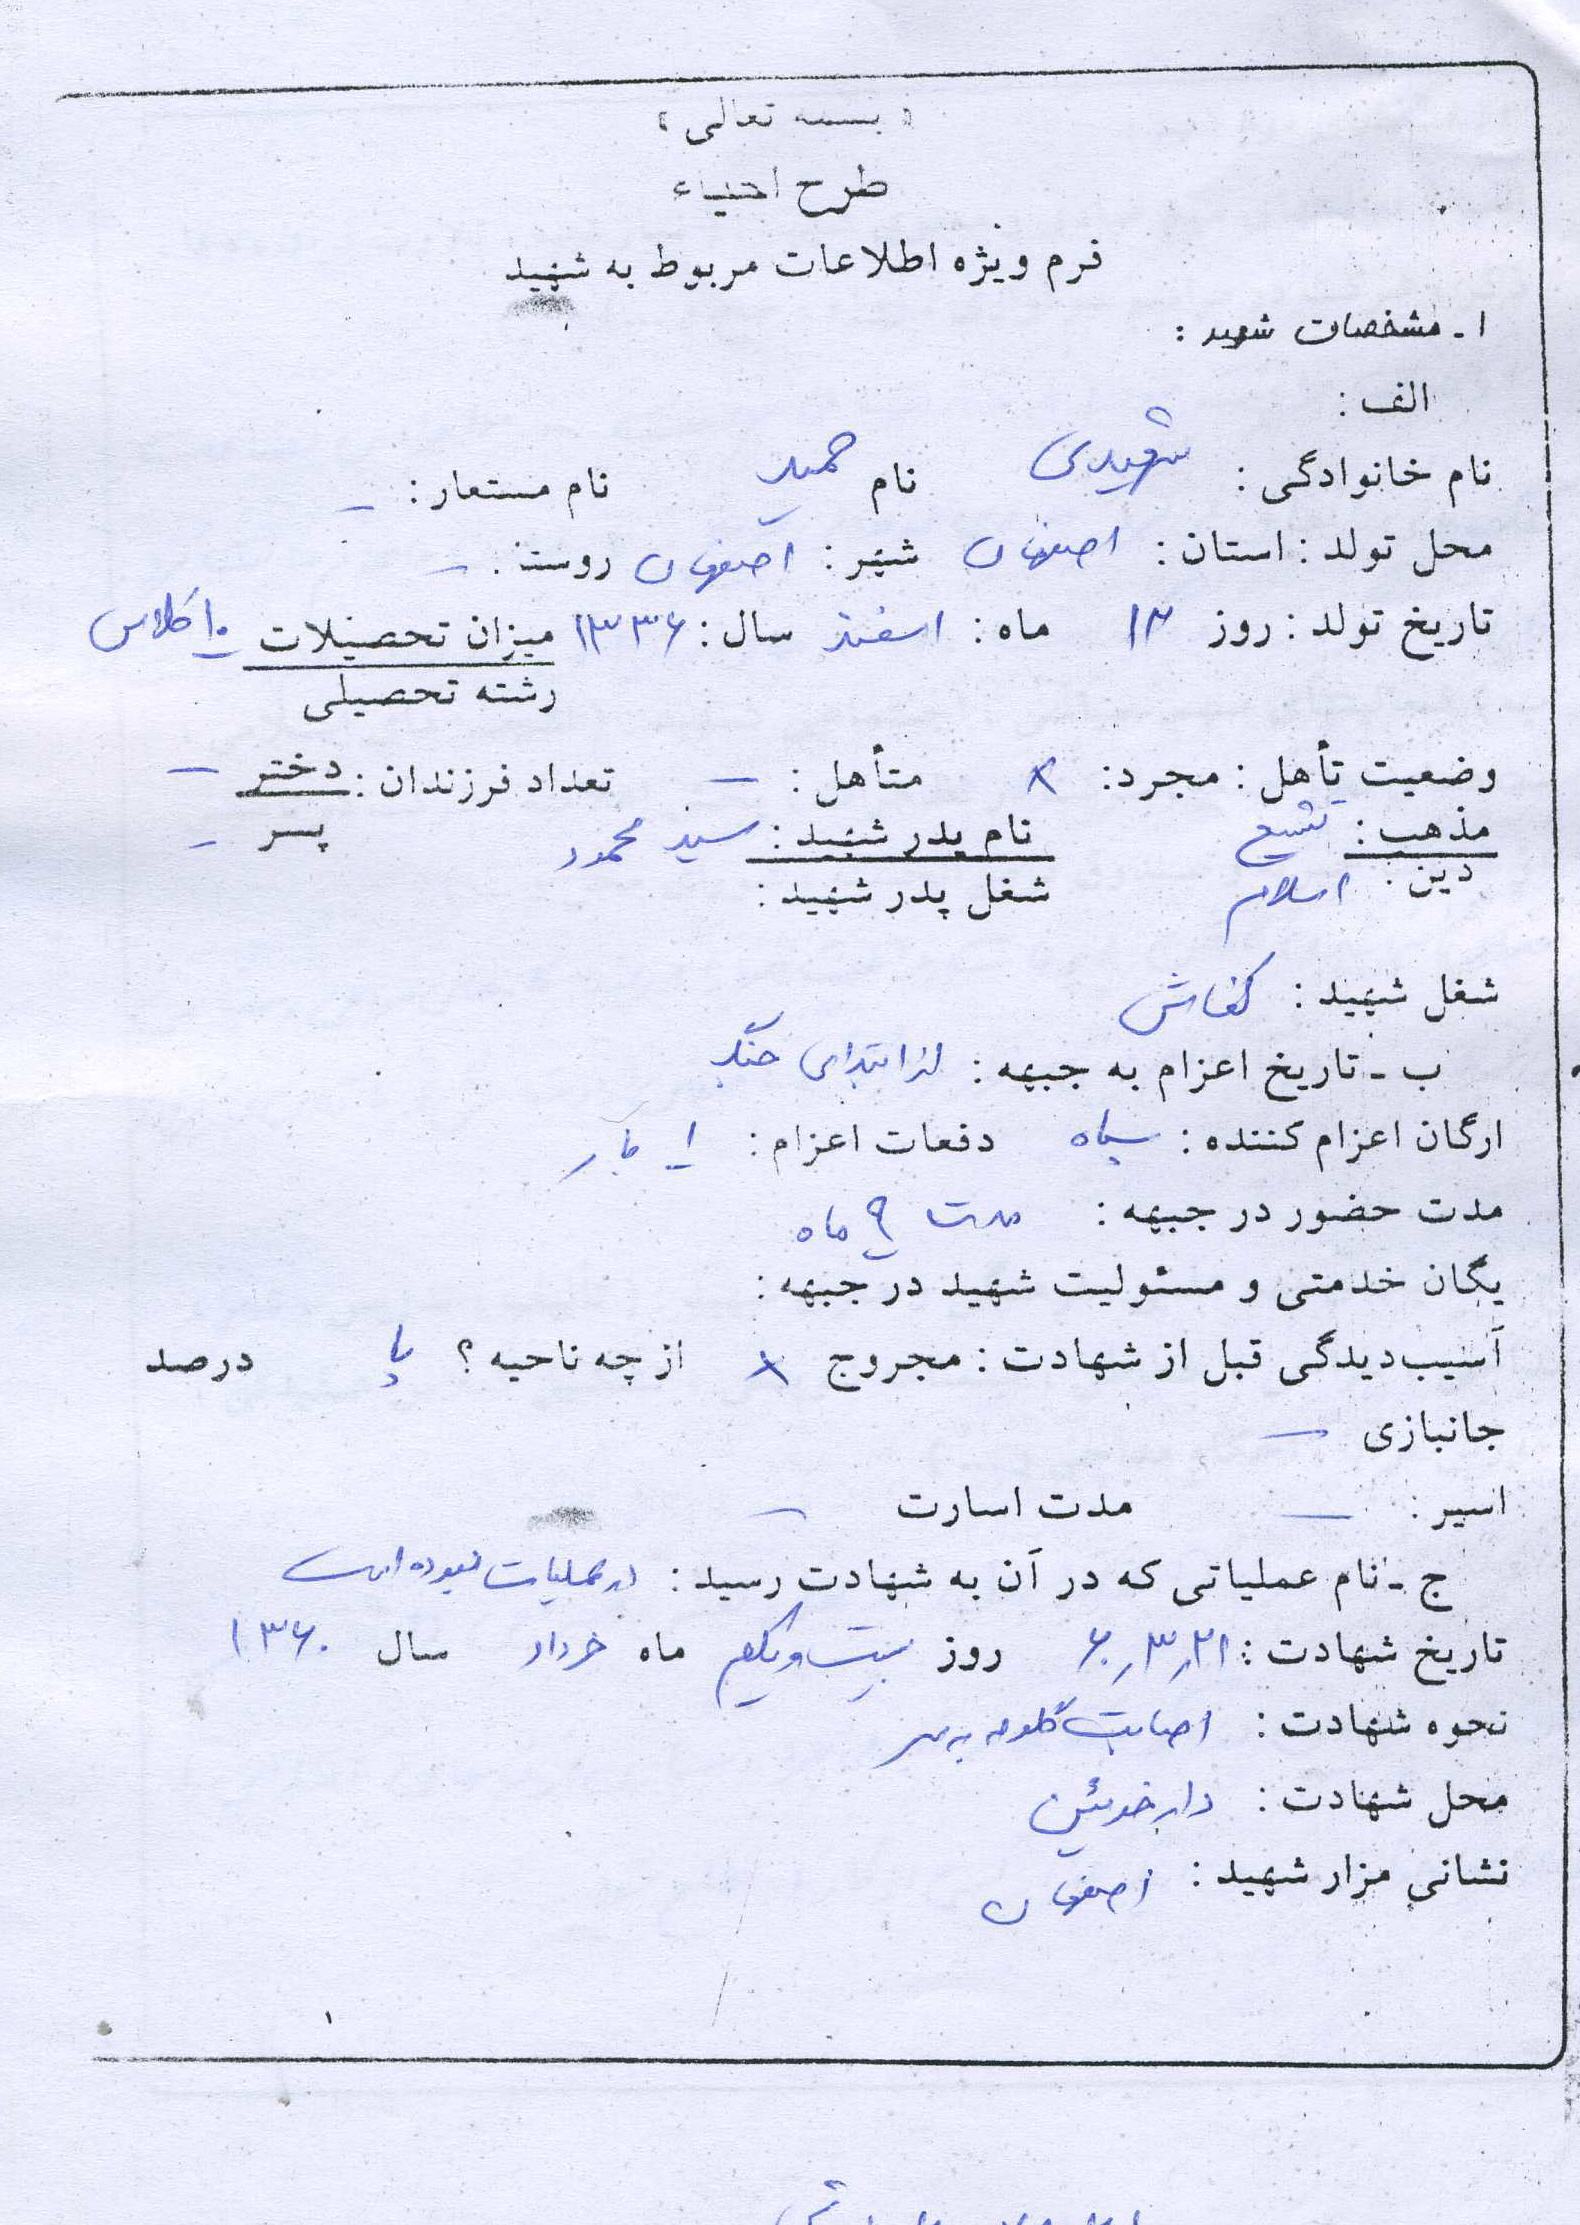 « بسمه تعالی »
طرح احیاء
فرم ویژه اطلاعات مربوط به شهید
۱ - مشخصات شهید :
الف :
نام خانوادگی : شهیدی نام حمید نام مستعار : -
محل تولد : استان : اصفهان شهر : اصفهان روستا : -
تاریخ تولد : روز ۱۲ ماه : اسفند سال : ۱۳۳۶ میزان تحصیلات ۱۰ کلاس
رشته تحصیلی
وضعیت تأهل : مجرد : × متأهل : - تعداد فرزندان : دختر -
پسر -
مذهب : تشیع نام پدر شهید : سید محمود
دین : اسلام شغل پدر شهید :
شغل شهید : کفاش
ب - تاریخ اعزام به جبهه : از ابتدای جنگ
ارگان اعزام کننده : سپاه دفعات اعزام : ۱ بار
مدت حضور در جبهه : مدت ۹ ماه
یگان خدمتی و مسئولیت شهید در جبهه :
آسیب‌دیدگی قبل از شهادت : مجروح × از چه ناحیه ؟ پا درصد
جانبازی -
اسیر : - مدت اسارت -
ج - نام عملیاتی که در آن به شهادت رسید : در عملیات نبوده است
تاریخ شهادت : ۶۰٫۳٫۲۱ روز بیست و یکم ماه خرداد سال ۱۳۶۰
نحوه شهادت : اصابت گلوله به سر
محل شهادت : دارخوئین
نشانی مزار شهید : اصفهان
۱